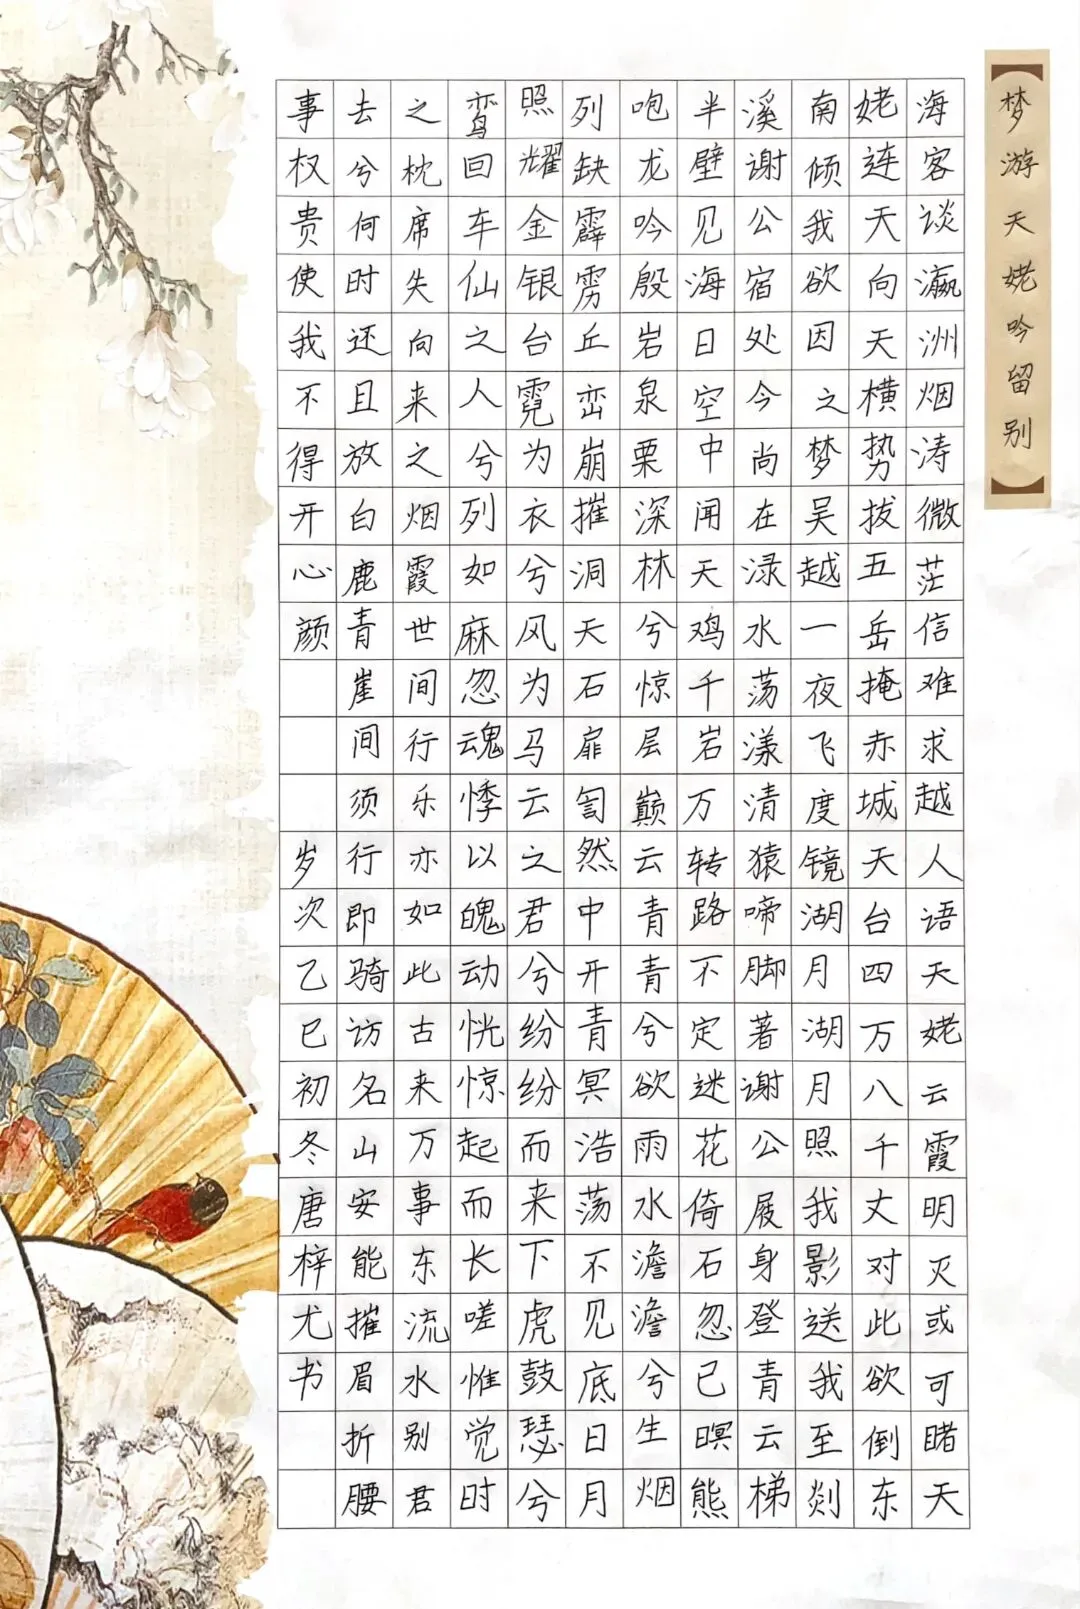 梦游天姥吟留别
海客谈瀛洲烟涛微茫信难求越人语天姥云霞明灭或可睹天
姥连天向天横势拔五岳掩赤城天台四万八千丈对此欲倒东
南倾我欲因之梦吴越一夜飞度镜湖月湖月照我影送我至剡
溪谢公宿处今尚在渌水荡漾清猿啼脚著谢公屐身登青云梯
半壁见海日空中闻天鸡千岩万转路不定迷花倚石忽已暝熊
咆龙吟殷岩泉栗深林兮惊层巅云青青兮欲雨水澹澹兮生烟
列缺霹雳丘峦崩摧洞天石扉訇然中开青冥浩荡不见底日月
照耀金银台霓为衣兮风为马云之君兮纷纷而来下虎鼓瑟兮
鸾回车仙之人兮列如麻忽魂悸以魄动恍惊起而长嗟惟觉时
之枕席失向来之烟霞世间行乐亦如此古来万事东流水别君
去兮何时还且放白鹿青崖间须行即骑访名山安能摧眉折腰
事权贵使我不得开心颜 岁次乙巳初冬唐梓尤书